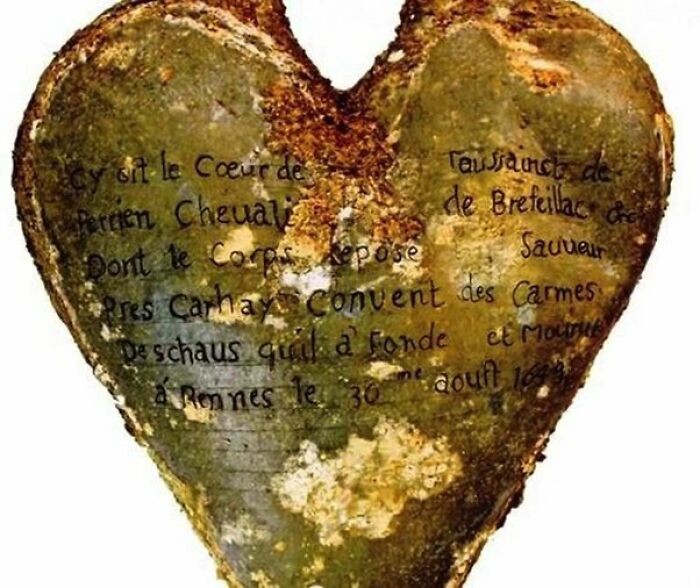 Cy git le Cœur de Toussainct de
Perrien Chevali de Brefeillac &c
Dont le Corps repose Sauveur
Pres Carhay Convent des Carmes
Deschaus quil à Fondé et Mourut
à Rennes le 30me aouſt 1649